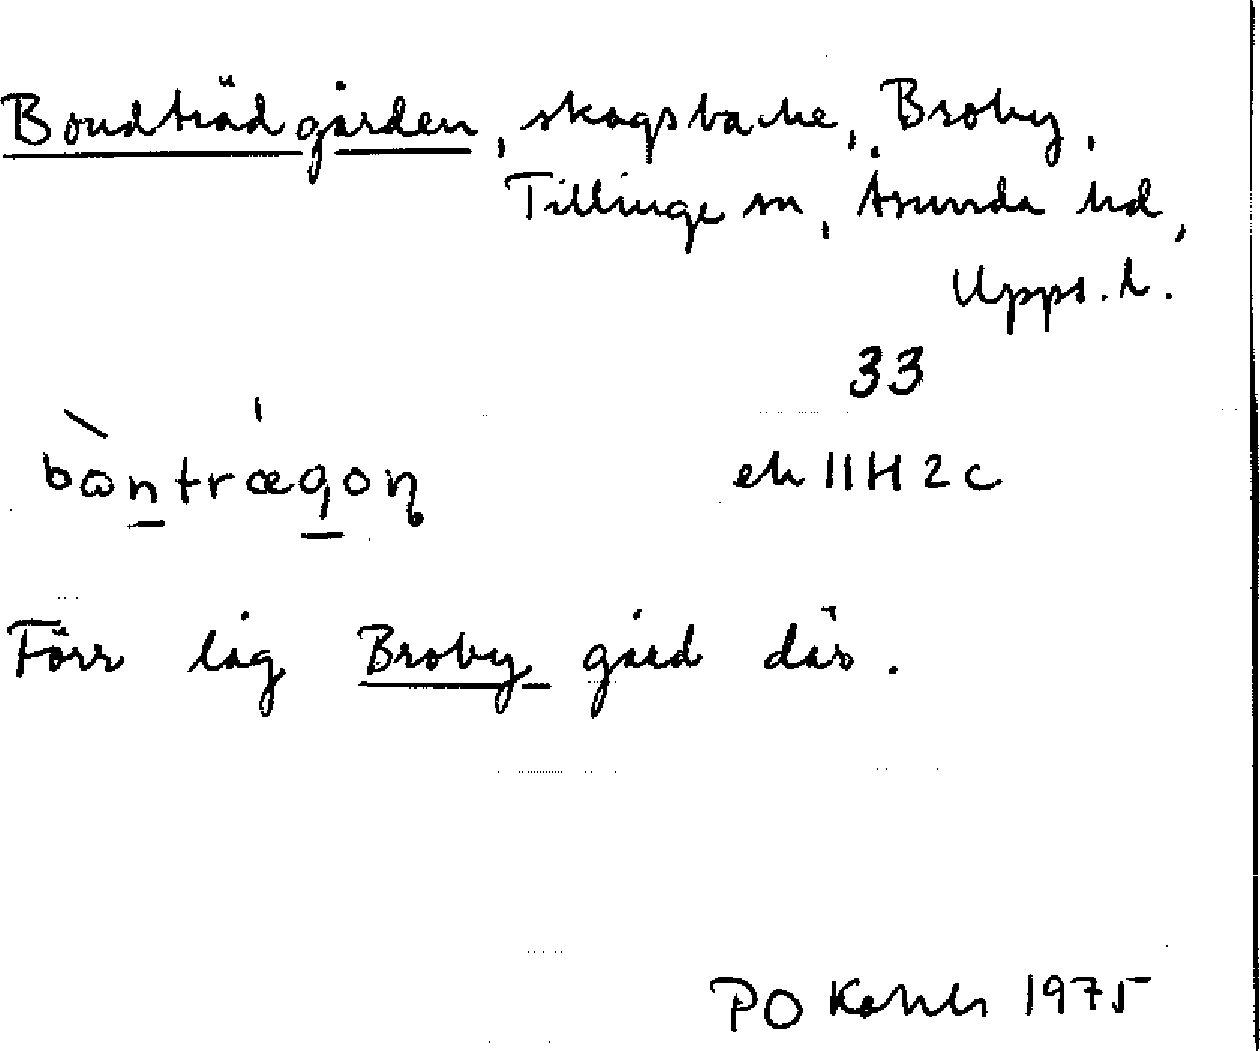 Bondträdgården, skogsbacke, Broby,
Tillinge sn, Åsunda hd,
Upps. l.
33
bòntræ̍gon̥ ek 11H2c
Förr låg Broby gård där.
PO 1975